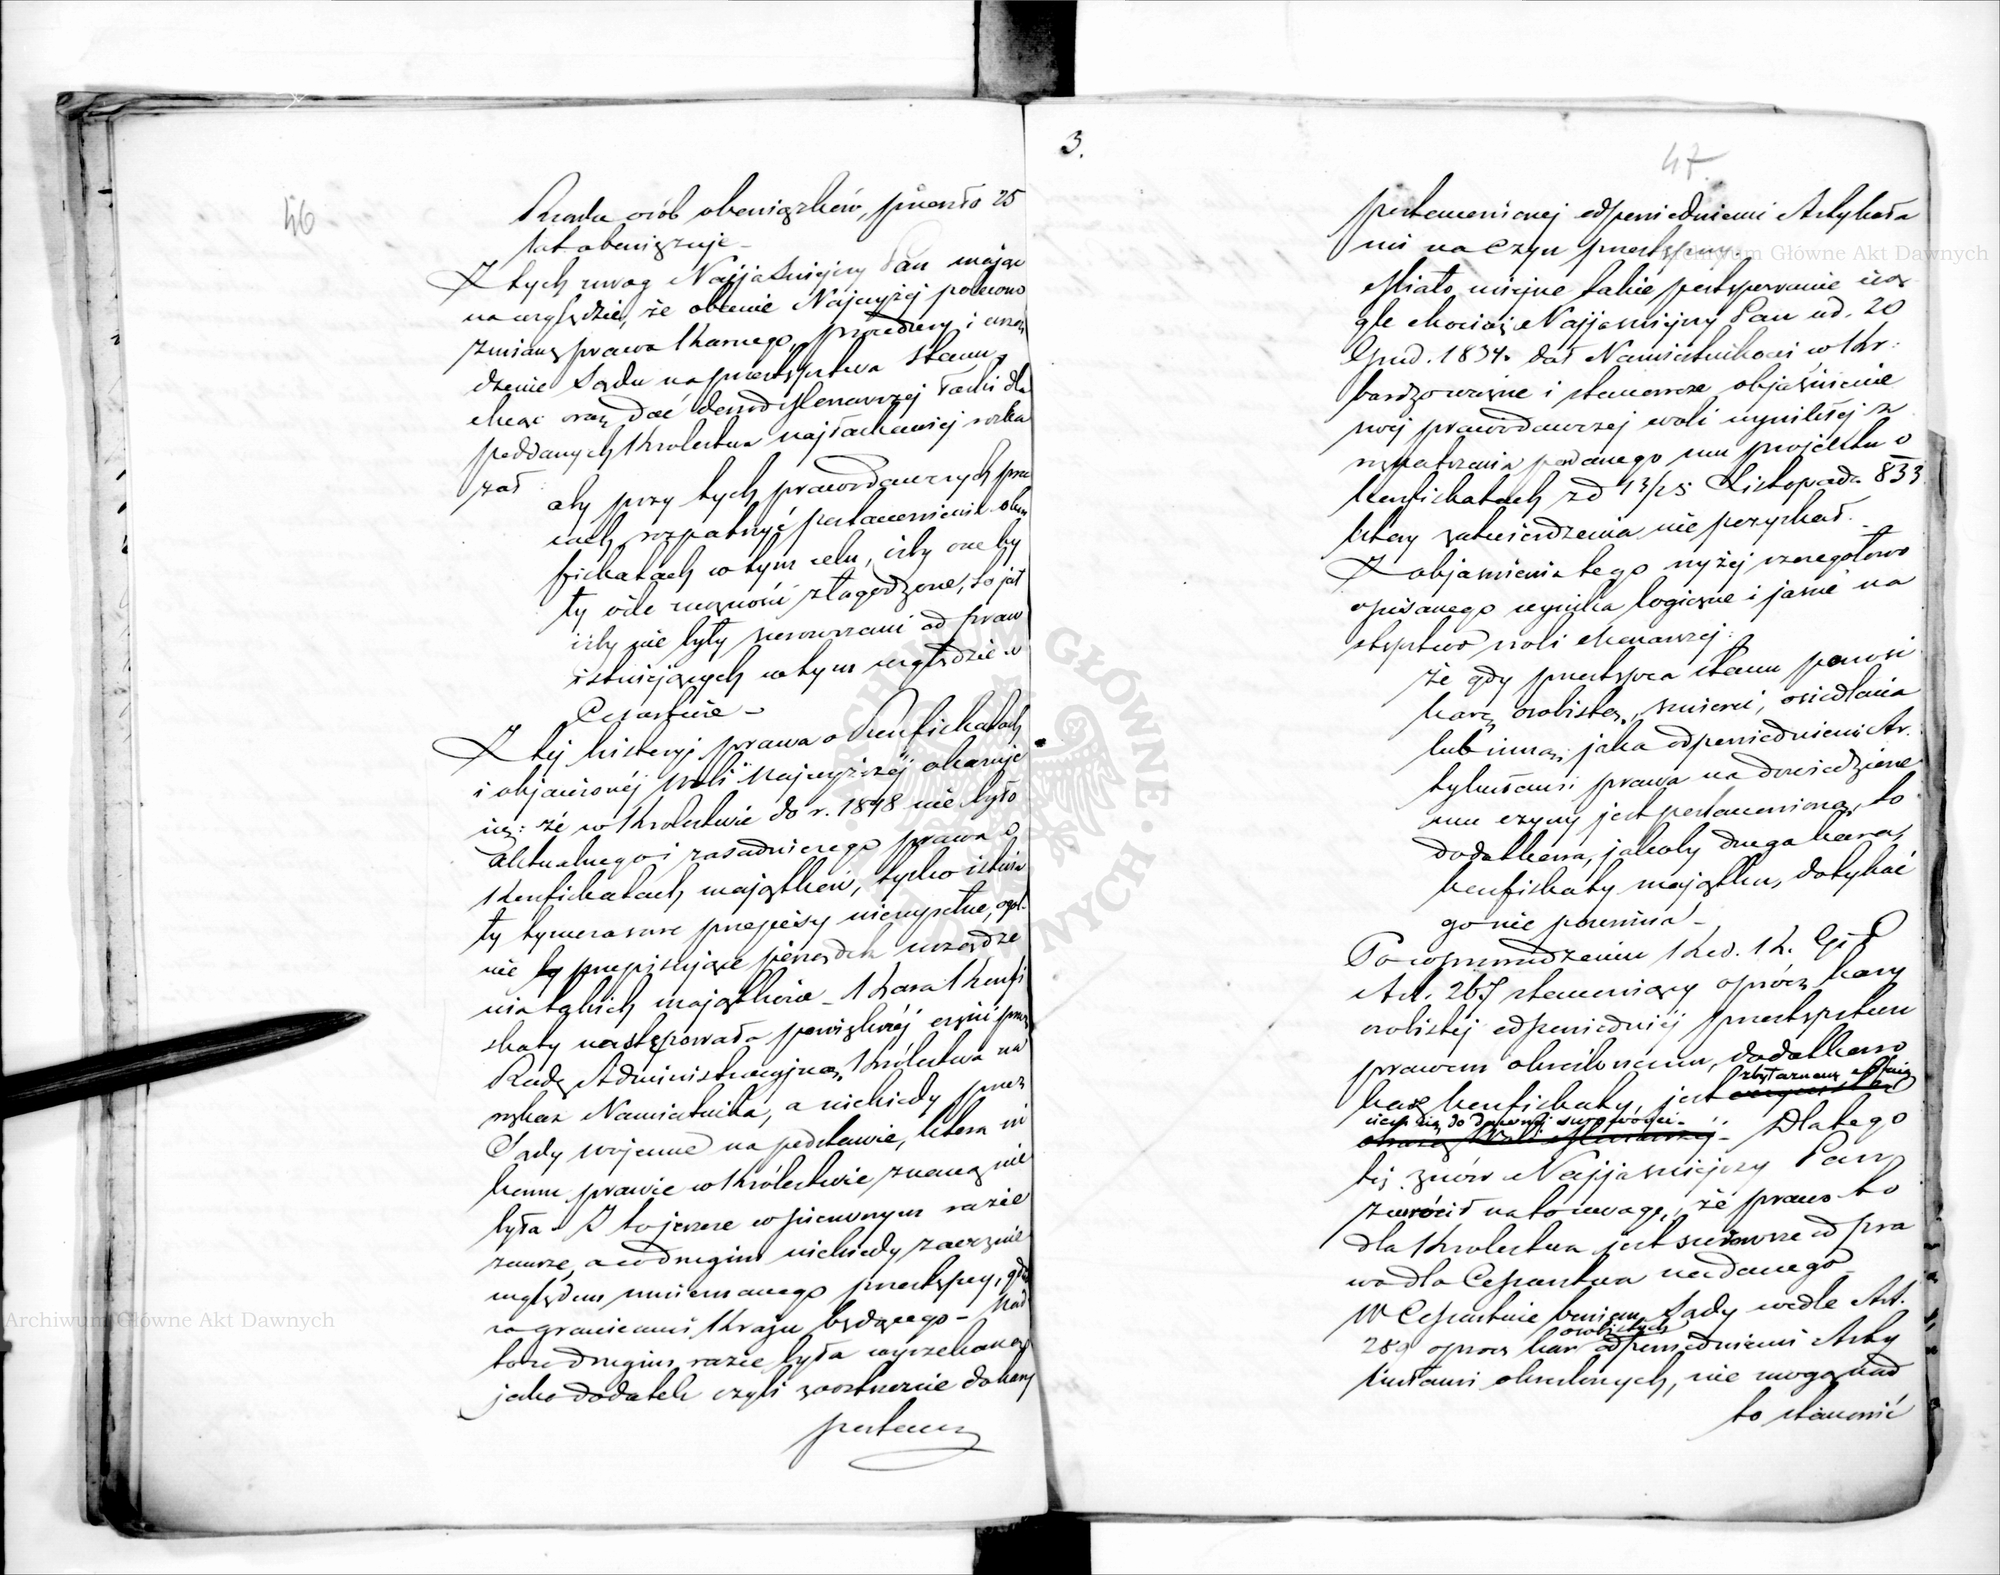 46
osób obowiązków, przeszło 25
lat obowiązuje –
Z tych uwag Najjaśniejszy Pan mając
na względzie, że obecnie Najwyżej polecono
zmianę prawa Karnego, procedury i urzą
dzenie Sądu na przestępstwa Stanu,
chcąc oraz dać dowód Monarszej łaski dla
poddanych Królestwa najłaskawiej rozka
zał:
aby przy tych prawodawczych pra
cach rozpatrzyć postanowienie o kon
fiskatach w tym celu, iżby one by
ły ile możność złagodzone, to jest
iżby nie były surowszemi od praw
istniejących w tym względzie w
Cesarstwie –
Z tej historyi prawa o Konfiskatach
i objawionej Woli Najwyższej okazuje
się: że w Królestwie do r. 1848 nie było
aktualnego i zasadniczego prawa o
Konfiskatach majątków, tylko istnia
ły tymczasowe przepisy niezupełne, ogól-
nie przepisujące porządek urządze
nia takich majątków – Kara Konfi
skaty następowała powiększej części przez
Radę Administracyjną Królestwa na
rozkaz Namiestnika, a niekiedy przez
Sądy wojenne na podstawie, która ni
komu prawie w Królestwie znaną nie
była – I to jeszcze w pierwszym razie
zawsze, a w drugim niekiedy zaocznie
względem mniemanego przestępcy, gdzie
za granicami Kraju będącego – Nad
to w drugim razie była wyrzekaną
jako dodatek czyli zaostrzenie do kary
postanow
3.
47.
postanowionej odpowiedniemi Artykuła
mi na czyn przestępny.
Miało miejsce takie postępowanie cią
gle chociaż Najjaśniejszy Pan ud. 20
Grud. 1834 r. dał Namiestnikowi w Kr:
bardzo ważne i stanowcze objaśnienie
swej prawodawczej woli wynikłej z
rozpatrzenia podanego mu projektu o
konfiskatach z d 13/25 Listopada 833
który zatwierdzenia nie pozyskał. –
Z objaśnienia tego wyżej szczegółowo
opisanego wynika logiczne i jasne na
stępstwo woli Monarszej:
że gdy przestępca stanu ponosi
karę osobistą, śmierci, osiedlenia
lub inną, jaka odpowiedniemi Ar:
tykułami prawa na dowiedziony
mu czyn jest postanowioną, to
dodatkowa, jakoby druga kara,
konfiskaty majątku, dotykać
go nie powinna –
Po wprowadzeniu Kod. K. G. i P
Art. 267 stanowiący oprócz kary
osobistej odpowiedniej przestępstwu
prawem określonemu, dodatkowo
karę konfiskaty, jest
zbyteczną
do dawnej surowości – Dlatego
też znów Najjaśniejszy Pan
zwrócił na to uwagę, że prawo to
dla Królestwa jest surowsze od pra
wa dla Cesarstwa nadanego –
W Cesarstwie bowiem Sądy wedle Art.
osobistych
289 oprócz kar odpowiedniemi Arty
kułami określonych, nie mogą nad
to stanowić
Archiwum Główne Akt Dawnych
Archiwum Główne Akt Dawnych
ARCHIWUM GŁÓWNE AKT DAWNYCH